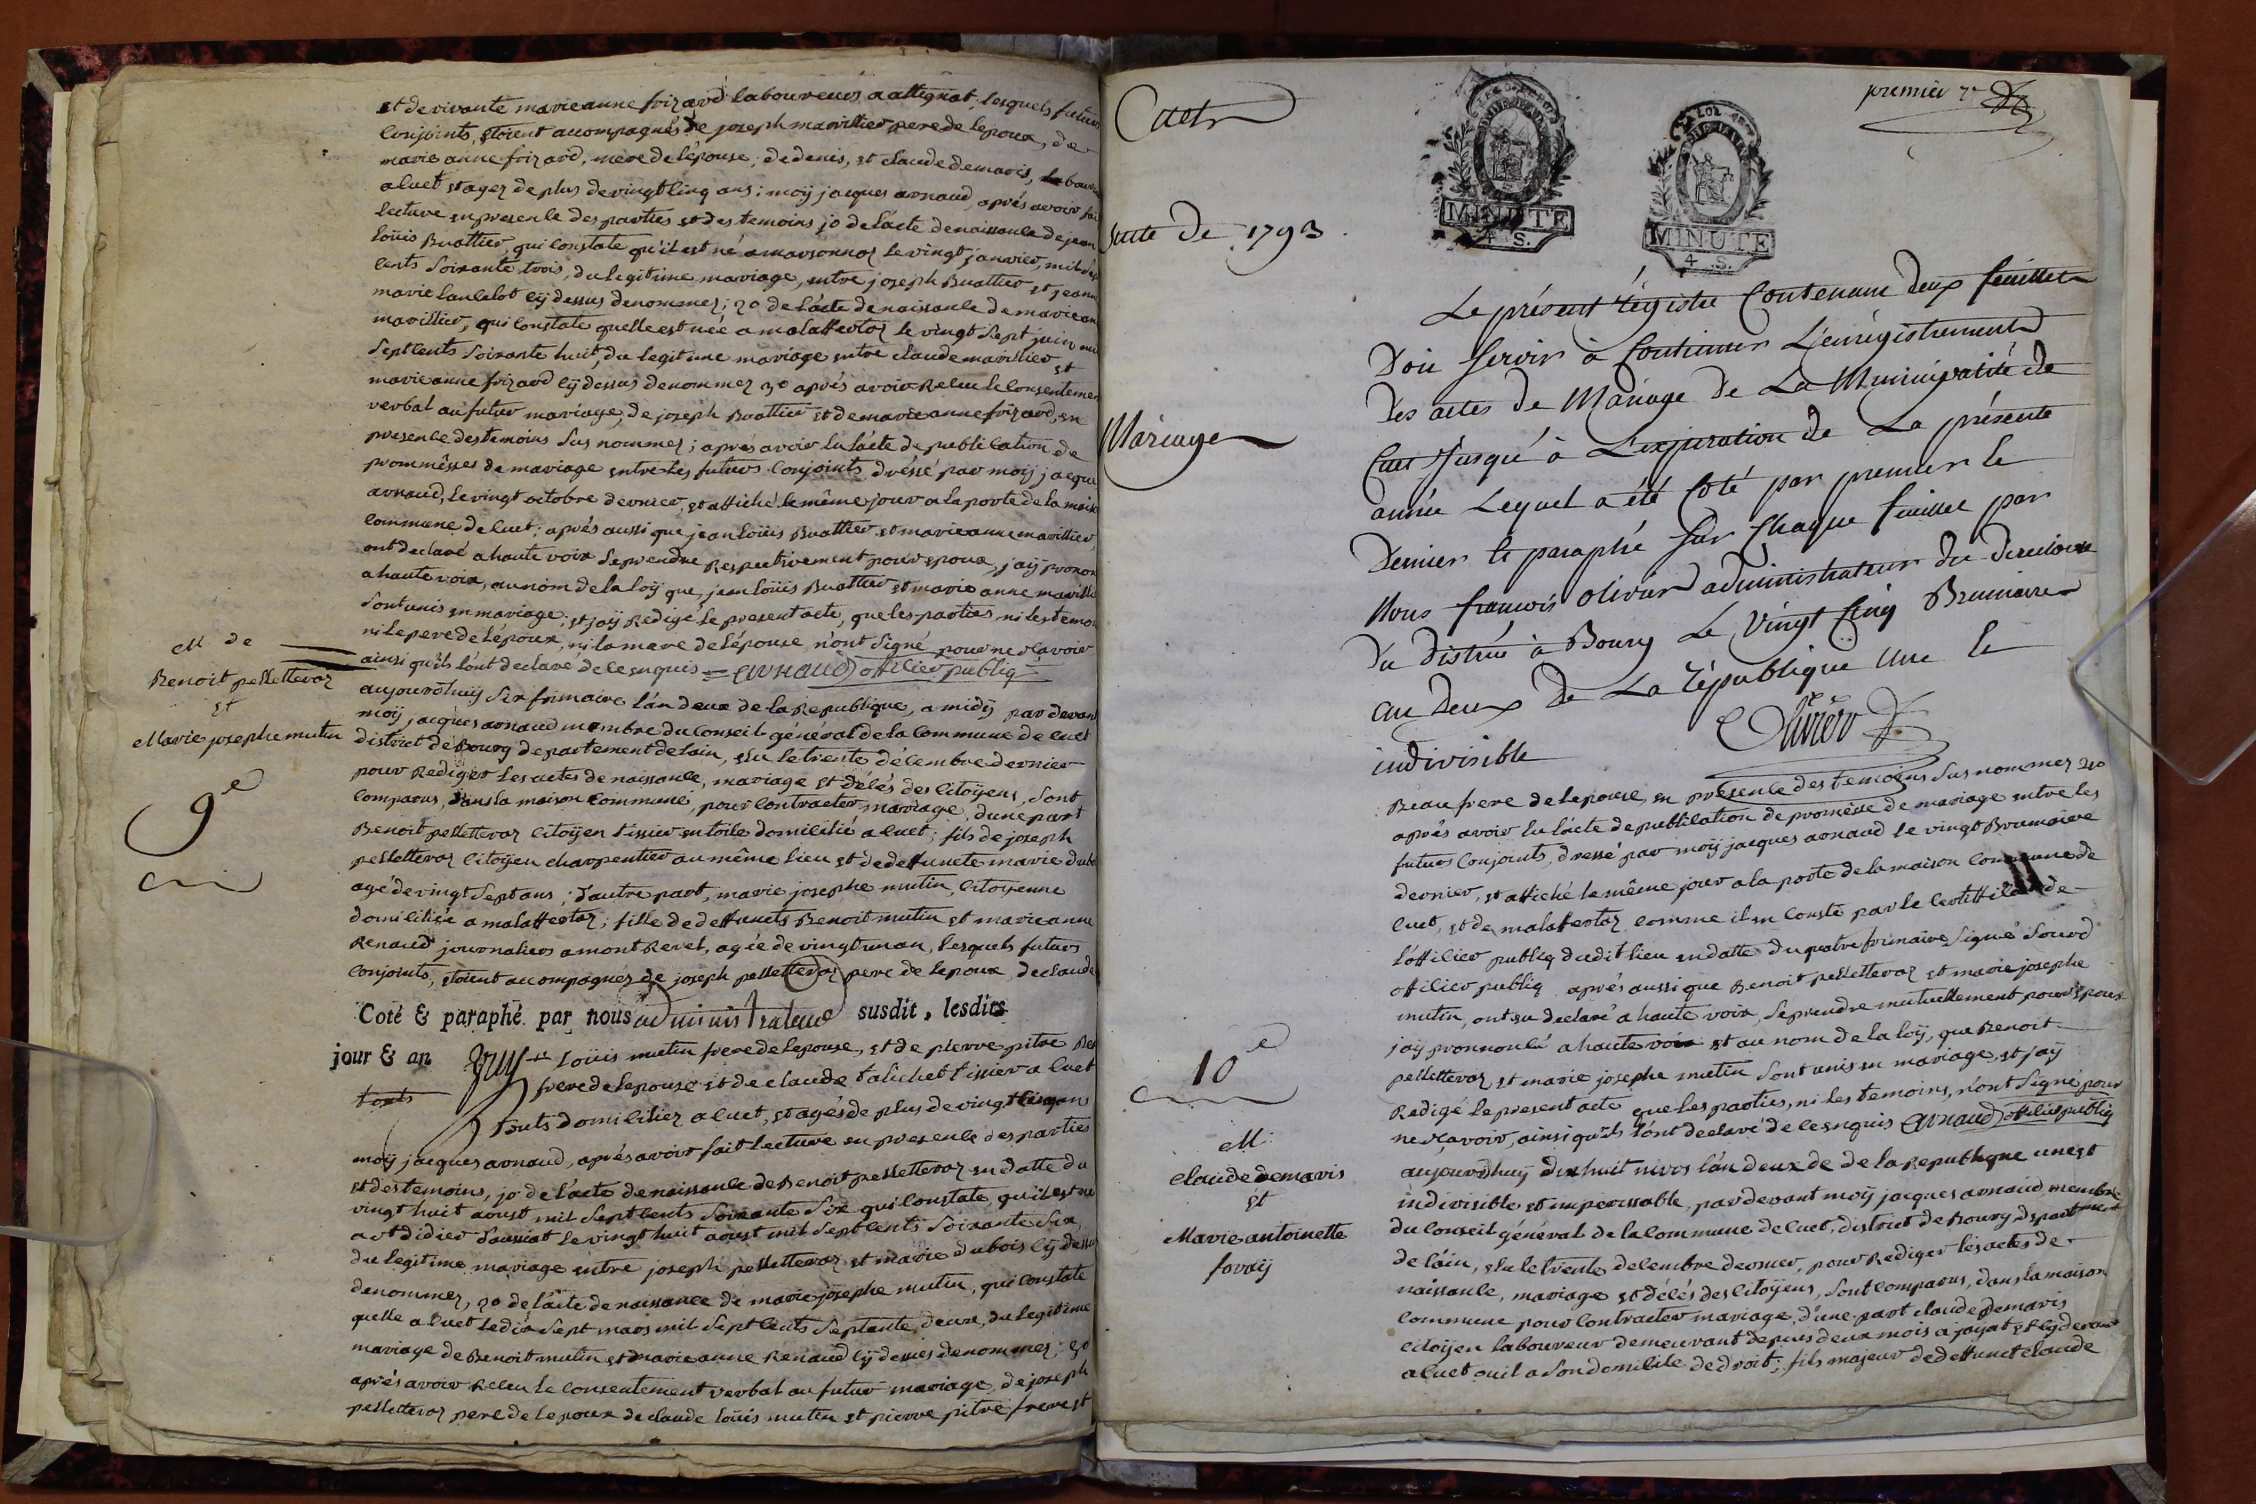 et de vivante marie anne frizard laboureurs a attignat, lesquels futurs
conjoints, etoient accompagnés de joseph marillier pere de lepoux, de
marie anne frizard, mere de lépouse, de denis, et claude demaris,
a cuet et agez de plus de vingt cinq ans; moÿ jacques arnaud, aprés avoir fai
lecture en presence des parties et des temoins jo de lácte de naissance de jean
loüis Buattier, qui constate qu'il est né a marsonnaz le vingt janvier, mil sept
cents soixante trois, du legitime mariage, entre joseph Buattier et jeanne
marie lancelot cÿ dessus denommez; 20 de lácte de naissance de marie an
marillier, qui constate quelle est née a malaffertaz le vingt sept juin mil
sept cents soixante huit, du legitime mariage entre claude marillier et
marie anne frizard cÿ dessus denommez 30 aprés avoir Receu le consentement
verbal au futur mariage, de joseph Buattier et de marie anne frizard, en
presence des temoins sus nommez; aprés avoir lu lácte de publication de
prommésses de mariage entre les futurs conjoints dréssé par moÿ jacque
arnaud, le vingt octobre dernier, et affiché le même jour a la porte de la maison
commune de cuet; aprés aussi que jean loüis Buattier et marie anne marillier,
ont declaré a haute voix se prendre Respectivement pour epoux, j'aÿ pronon
a haute voix, au nom de la loÿ que, jean loüis Buattier et marie anne marillie
sont unis en mariage; et j'aÿ Redigé le present acte, que les parties, ni les temoi
ni le pere de lépoux, ni la mere de lépouse, n'ont signé pour ne sçavoir
ainsi qu'ils l'ont declaré de ce enquis = arnaud officier publiq
M de
Benoit pellettevaz
et
Marie josephe mutin
9e
aujourdhuÿ six frimaire l'an deux de la Republique, a midÿ par devant
moÿ jacques arnaud membre du conseil général de la commune de cuet
district de Bourg departement de lain, elu le trente décembre dernier
pour Rediger les actes de naissance, mariage et décés des citoÿens, sont
comparus, dans la maison commune, pour contracter mariage, d'une part
Benoit pellettevaz citoÿen tissier en toile domicilié a cuet; fils de joseph
pellettevaz citoÿen charpentier au même lieu et de deffuncte marie dubo
agé de vingt sept ans; d'autre part, marie josephe mutin citoyenne
domiciliée a malaffertaz; fille de deffuncts Benoit mutin et marie anne
Renaud journaliers a mont Revel, agée de vingt un an, lesquels futurs
conjoints, etoient accompagnez de joseph pellettevaz pere de lepoux, de claude
Coté & paraphé par nous administrateur susdit, lesdits
jour & an
loüis mutin frere de lepouse, et de pierre pitre Be
frere de lepouse et de claude talichet tissier a cuet
touts
touts domiciliez a cuet, et agés de plus de vingt cinq ans
moÿ jacques arnaud, aprés avoir fait lecture en presence des parties
et des temoins, jo de lácte de naissance de Benoit pellettevaz en datte du
vingt huit aoust mil sept cents soixante six qui constate, qu'il est né
a st didier daussiat le vingt huit aoust mil sept cents soixante six,
du legitime mariage entre joseph pellettevaz et marie dubois cÿ dessus
denommez, 20 de lácte de naissance de marie josephe mutin, qui constate
quelle a cuet le dix sept mars mil sept cents septante deux, du legitime
mariage de Benoit mutin et marie anne Renaud cÿ dessus denommez; 30
aprés avoir Receu le consentement verbal au futur mariage, de joseph
pellettevaz pere de lepoux de claude loüis mutin et pierre pitre frere et
premier
Cuet
MINUTE
4 S.
LA LOI
MINUTE
4 S.
Suite de 1793.
Mariage
Le présent régistre Contenant deux feuillets
Doit servir à Continuer L'enrégistrement
Des actes de Mariage de La Municipalité de
Cuet Jusqu'à L'expiration de La présente
année Lequel a été Coté par premier &
Dernier & paraphé sur Chaque feuillet par
Nous françois olivier administrateur du Directoire
du District à Bourg Le Vingt Cinq Brumaire
an Deux De La République Une &
indivisible
Olivier
Beau frere de lepouse, en presence des temoins sus nommez
aprés avoir lu lácte de publication de promésse de mariage entre les
futurs conjoints, dressé par moÿ jacques arnaud le vingt Brumaire
dernier, et affiché le même jour a la porte de la maison commune de
cuet, et de malaffertaz comme il en conste par le certifficat de
lófficier publiq dudit lieu en datte du quatre frimaire signé
officier publiq aprés aussi que Benoit pellettevaz et marie josephe
mutin, ont eu declaré a haute voix, se prendre mutuellement pour epoux
j'aÿ pronnoncé a haute voix et au nom de la loÿ, que Benoit
pellettevaz et marie josephe mutin sont unis en mariage, et j'aÿ
Redigé le present acte que les parties, ni les temoins, n'ont signé pour
ne sçavoir, ainsi qu'ils l'ont declaré de ce enquis arnaud officier publiq
10e
M
claude demaris
et
Marie antoinette
foraÿ
aujourdhuÿ dix huit nivos l'an deux de de la Republique une et
indivisible et imperissable, par devant moÿ jacques arnaud, membre
du conseil général de la commune de cuet, district de Bourg departement
de láin, elu le trente decembre dernier, pour Rediger les actes de
naissance, mariage et décés des citoÿens, sont comparus, dans la maison
commune pour contracter mariage, d'une part claude Demaris
citoÿen laboureur demeurant depuis deux mois a jayat et cÿ devant
a cuet ou il a son domicile de droit; fils majeur de deffunct claude